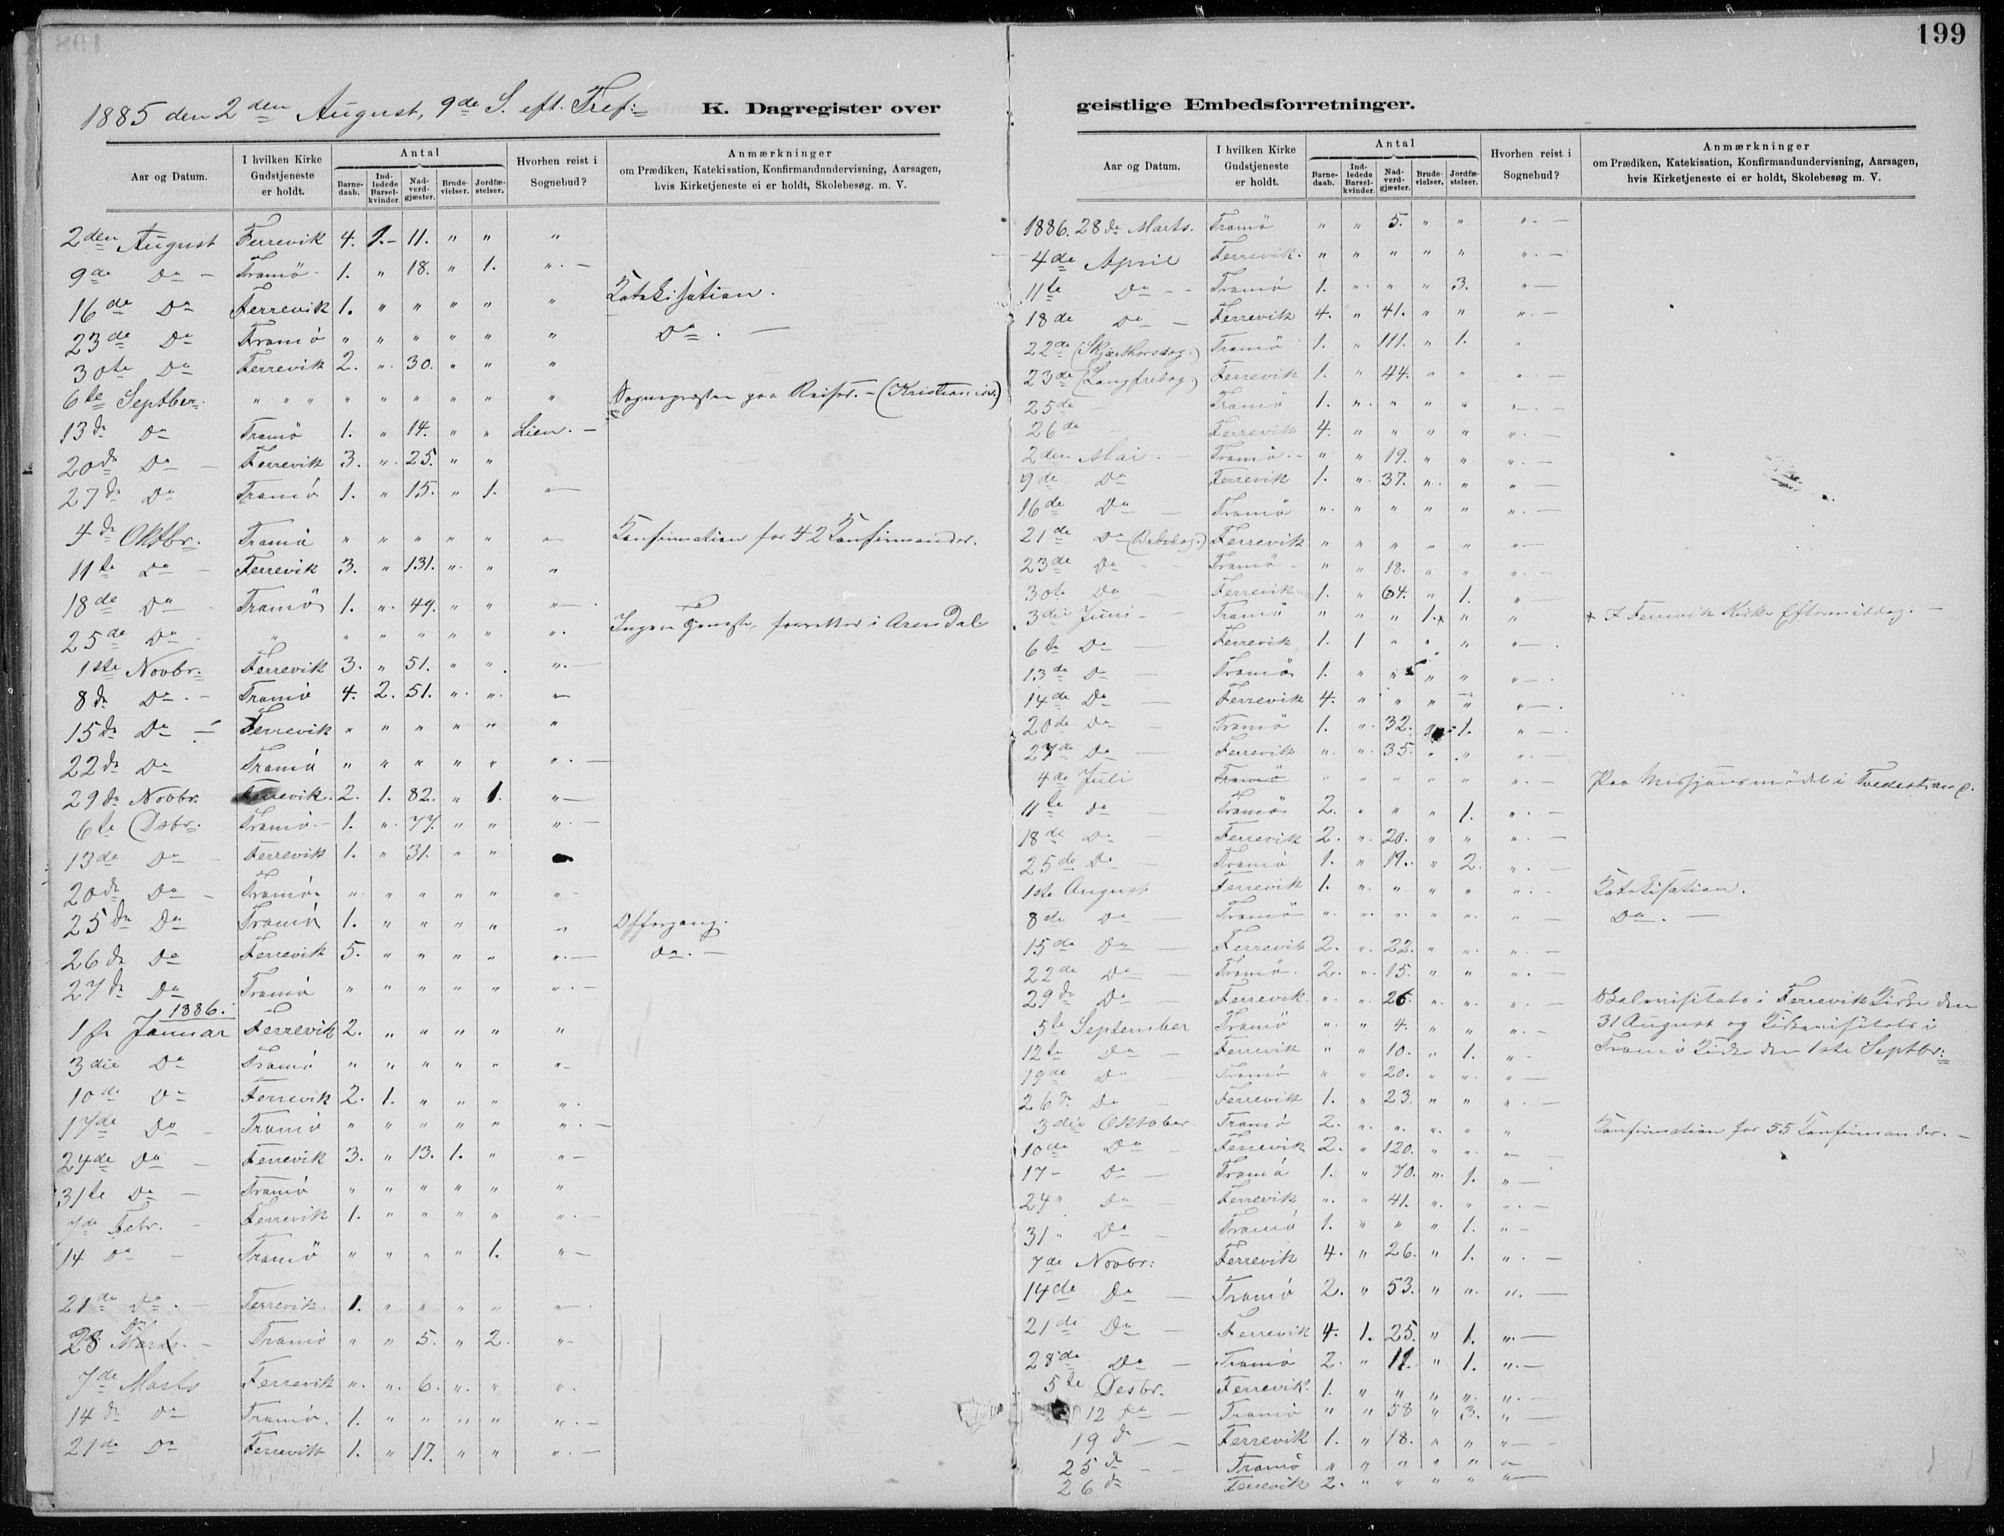 199
1885 den 2den August, 9de S. eft. Tref:
K. Dagregister over geistlige Embedsforretninger.
Aar og Datum. | I hvilken Kirke Gudstjeneste er holdt. | Antal | Barnedaab. | Indledede Barselkvinder. | Nadverdgjæster. | Brudevielser. | Jordfæstelser. | Hvorhen reist i Sognebud? | Anmærkninger om Prædiken, Katekisation, Konfirmandundervisning, Aarsagen, hvis Kirketjeneste ei er holdt, Skolebesøg. m. V.
2den August Færevik 4. 1.- 11. " " "
9de Do - Tromø 1. " 18. " 1. ". -
16de Do Færevik 1. " " " " " Katekisation.
23de Do Tromø " " " " " " Do. -
30te Do Færevik 2. ". 30. " " "
6te Septber. " " " " " " " " " Sognepræsten paa Reiser. - (Kristiania)
13de Do Tromø 1. " 14. " " Lien. -
20de Do - Færevik 3. ". 25. " "
27de Do Tromø 1. " 15. " 1. " -
4de Oktbr. Tromø " " " " " " - Konfirmation for 42 Konfirmander.
11te Do - Færevik 3. " 131. ". " "
18de Do Tromø 1. ". 49. " " " -
25de Do - " " " " " " ". Ingen Tjeneste, forrettet i Arendal
1ste Novbr: Færevik 3. " 51. " ". ". -
8de Do. - Tromø 4. 2. 51. ". ". " -
15de Do - Færevik " " " " " "
22de Do Tromø " " " " " ". -
29de Novbr. Færevik. 2. 1. 82. " 1. " -
6te Desbr: Tromø. - 1. ". 77. " " ". -
13de Do - Færevik 1. " 31. " "
20de Do - Tromø. ". " " " " "
25de Do Tromø 1. " " " " " Offergang.
26de Do Færevik 5. " " " " ". - do. -
27de Do Tromø " " " " " ". -
1886.
1ste Januar Færevik 2. " " " " "
3die Do Tromø " " " " " " -
10de Do Færevik 2. 1. " " " ".
17de Do - Tromø " " " " " ". -
24de Do - Færevik 3. " 13. 1. " " -
31te Do - Tromø " " " " " "
7de Febr. - Færevik 1. " " " " ". -
14 Do - Tromø " " " " 1. " -
21de Do. - Færevik. 1. " " " " " -
28 Do - Tromø " " 5. " 2. " -
7de Marts Færevik ". ". 6. ". " ".
14de Do Tromø. 1. " " " " ". -
21de Do Færevik 1. " 17. " " ". -
Aar og Datum. | I hvilken Kirke Gudstjeneste er holdt. | Antal | Barnedaab. | Indledede Barselkvinder. | Nadverdgjæster. | Brudevielser. | Jordfæstelser. | Hvorhen reist i Sognebud? | Anmærkninger om Prædiken, Katekisation, Konfirmandundervisning, Aarsagen, hvis Kirketjeneste ei er holdt, Skolebesøg. m. V.
1886. 28de Marts. Tromø " " 5. " " ". -
4de April Færevik. " " " " " ". -
11te Do - - Tromø 1. ". " " 3. " -
18de Do - Færevik 4. " 41. " " ". -
22de (Skjærthorsdag.) Tromø 1. " 111. " 1. "
23de (Langfredag.) Færevik 1. " 44. " " ". -
25de - Tromø 1. ". " " " " -
26de Færevik 4. " " " " ". -
2den Mai. - Tromø. - " " 19. " " ". -
9de Do Færevik 1. ". 37. ". " " -
16de Do - Tromø ". " " " " ". -
21de Do (Bededag.) Færevik " " " " " " -
23de Do - - Tromø - " " 18. " " ". -
30te Do - Færevik 1. " 64. " 1. " -
3die Juni - Tromø " " " 1.x " " x I Færevik Kirke Eftermiddag. -
6te Do - Færevik 1. 1 " " " " -
13de Do - Tromø 1. " " " " ". -
14de Do - Færevik 4. " " " " ". -
20de Do - Tromø 1. ". 32. 1. ". -
27de Do - Færevik ". ". 35. " " ". -
4de Juli Tromø " " " " " ". - Paa Missjonsmødet i Tvedestrand.
11te Do - Tromø 2. " " " 1. ". -
18de Do - Færevik 2. ". 20. " " ". -
25de Do - Tromø 1. " 19. " 2. ". -
1ste August Færevik 1. ". " " " ". - Katekisation.
8de Do - Tromø ". ". ". " " " Do. -
15de Do - Færevik 2. ". 22. " " ". -
22de Do - Tromø. 2. ". 15. " " ". -
29de Do - Færevik. ". ". 26. ". " ". - i Færevik Kirke den
5te September Tromø " " 4. " " ". - 31 August og i
12te Do - Færevik " " 10. " 1. " - Tromø Kirke den 1ste Septbr:
19de Do - Tromø " " 20. " " " -
26de Do - Færevik 1. " 23. " " ". -
3die Oktober Tromø 2. ". ". " " " Konfirmation for 55 Konfirmander. -
10de Do - Færevik 2. " 120. " " " -
17 - Do - Tromø 1. " 70. ". 1. " -
24 " Do - Færevik ". " 41. " " ". -
31 " Do - Tromø 1. " " " 1. " -
7de Novbr: Færevik 4. " 26. " 1. ". -
14de Do - Tromø 2. " 53. " ". ". -
21de Do - Færevik 4. 1. 25. " 1. ". -
28de Do - Tromø 2. " 11. " 1. ". -
5te Desbr. Færevik. 1. " " " " ". -
12 Do - Tromø " " 58 " 3. " -
19 d - - Færevik 1. " 18. " " " -
25 d - - Tromø " " " " " " -
26 d Færevik 2. " " " " " -